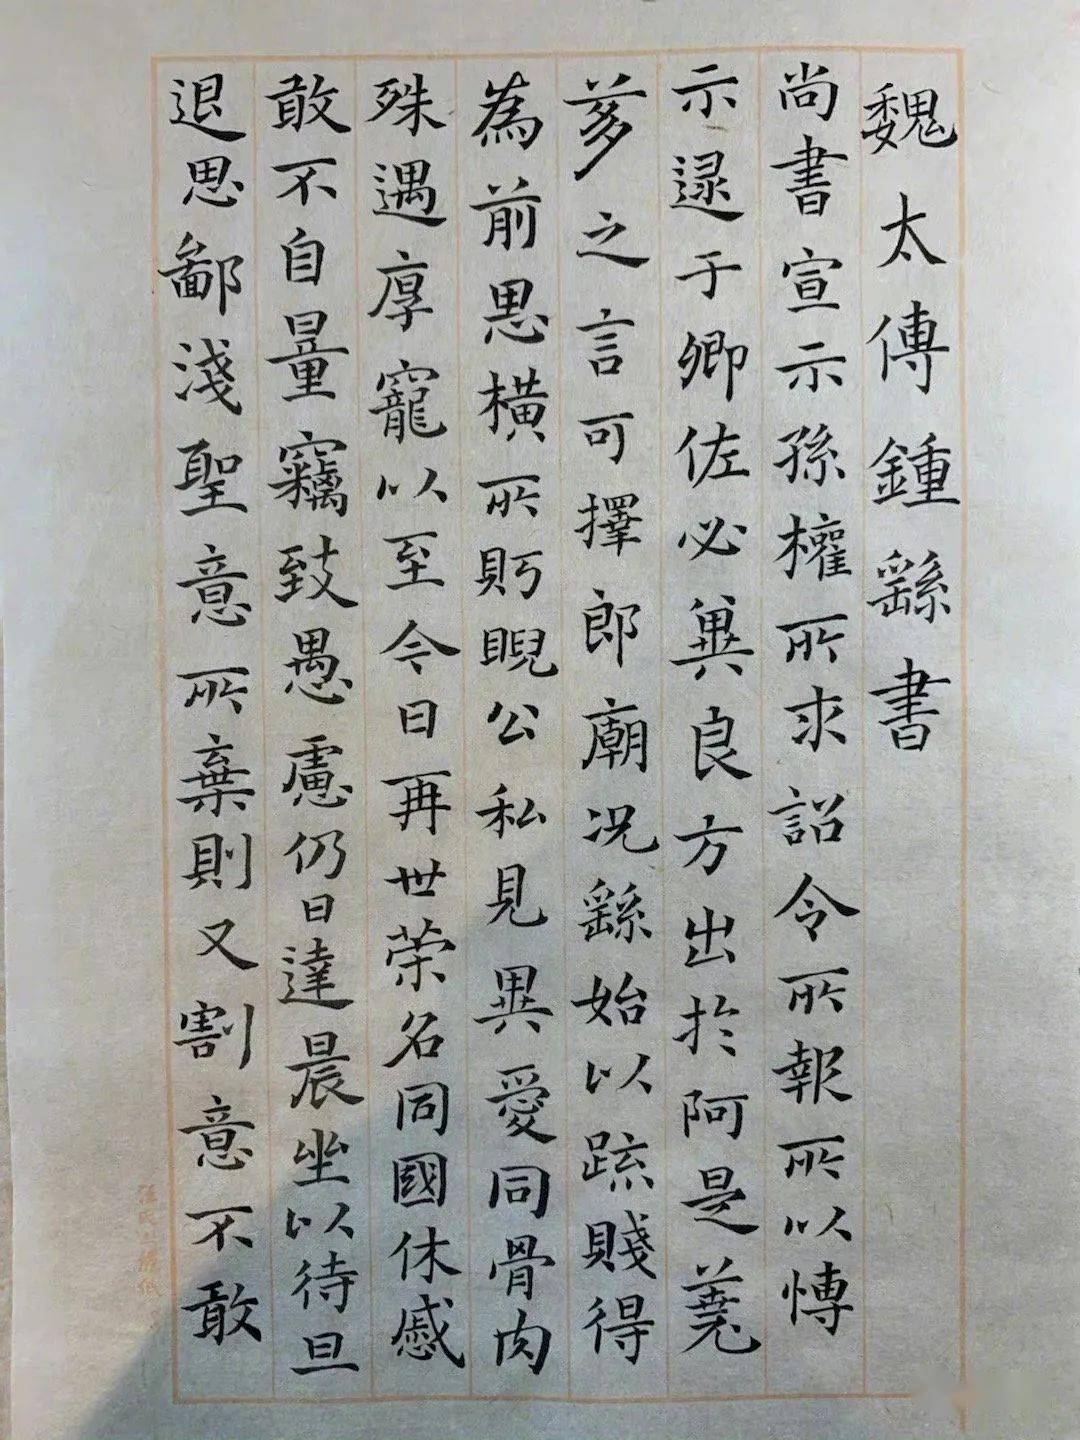 魏太傅鍾繇書
尚書宣示孫權所求詔令所報所以博
示逮于卿佐必冀良方出於阿是蕘
荛之言可擇郎廟況繇始以疏賤得
為前恩横所眄睨公私見異愛同骨肉
殊遇厚寵以至今日再世荣名同國休慼
敢不自量竊致愚慮仍日達晨坐以待旦
退思鄙淺聖意所棄則又割意不敢